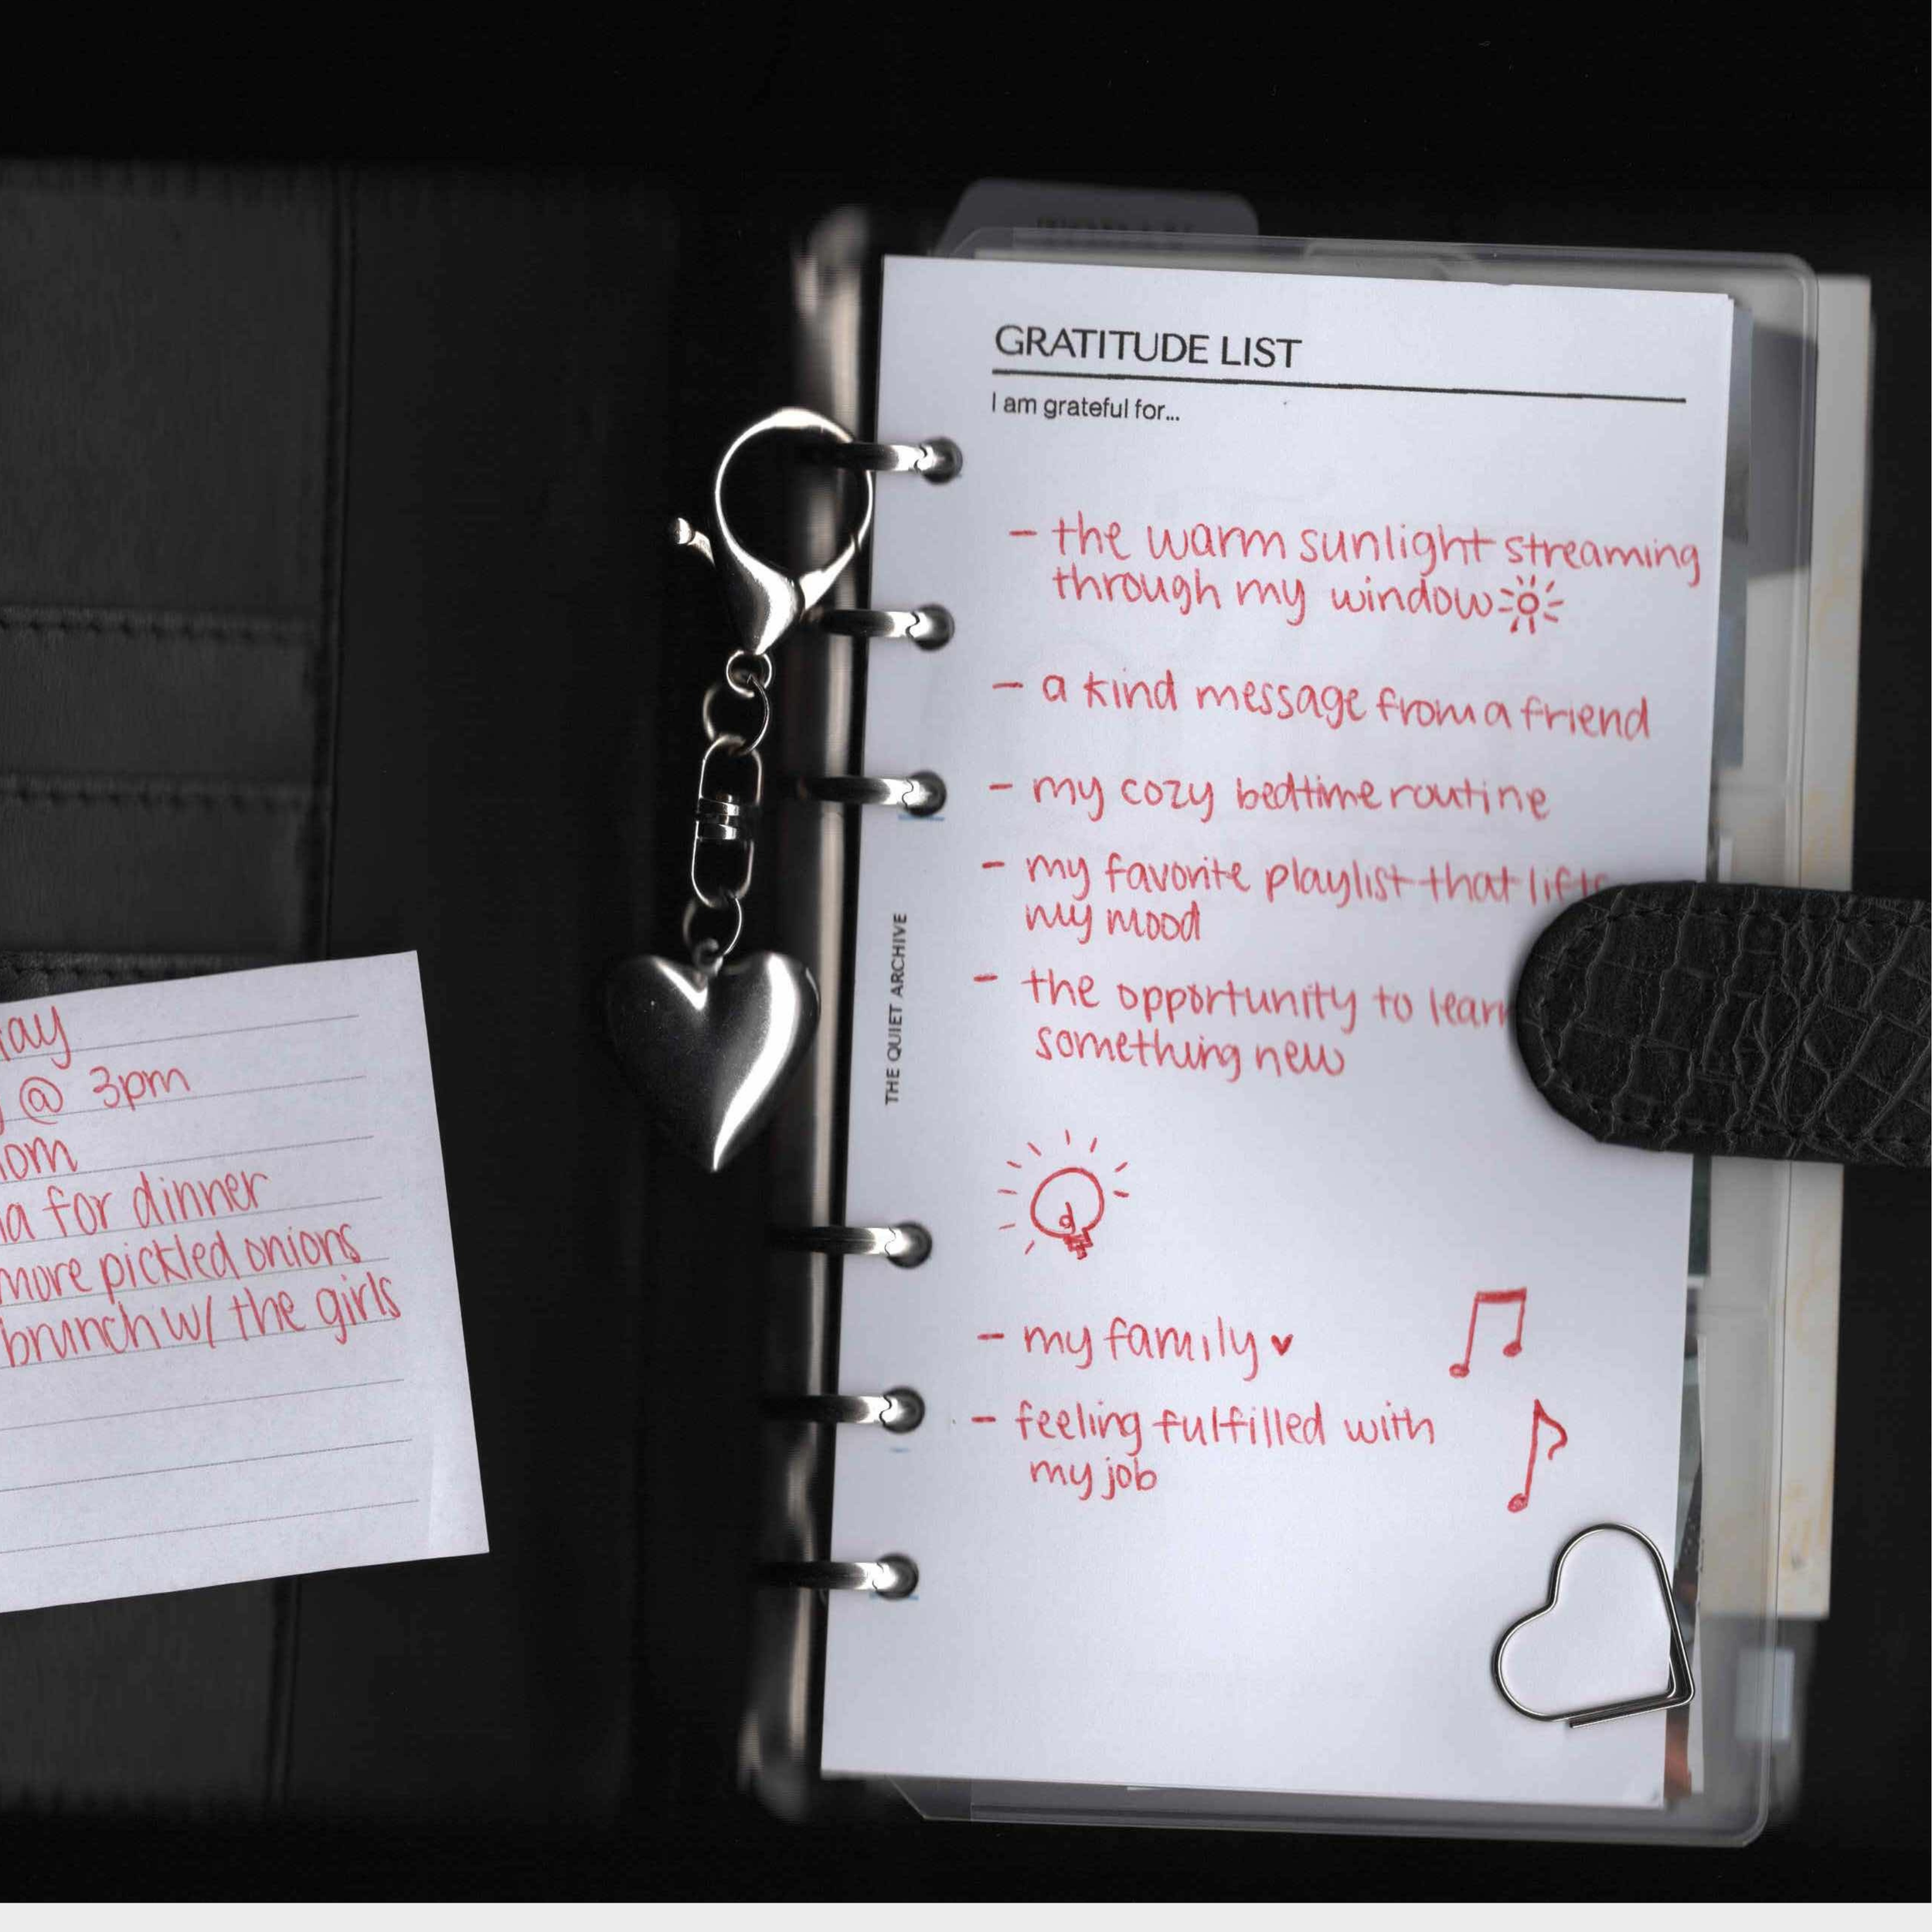 GRATITUDE LIST
I am grateful for...
- the warm sunlight streaming
through my window
- a kind message from a friend
- my cozy bedtime routine
- my favorite playlist that lifts
my mood
- the opportunity to learn
something new
- my family ♥
- feeling fulfilled with
my job
THE QUIET ARCHIVE
@ 3pm
for dinner
more pickled onions
brunch w/ the girls